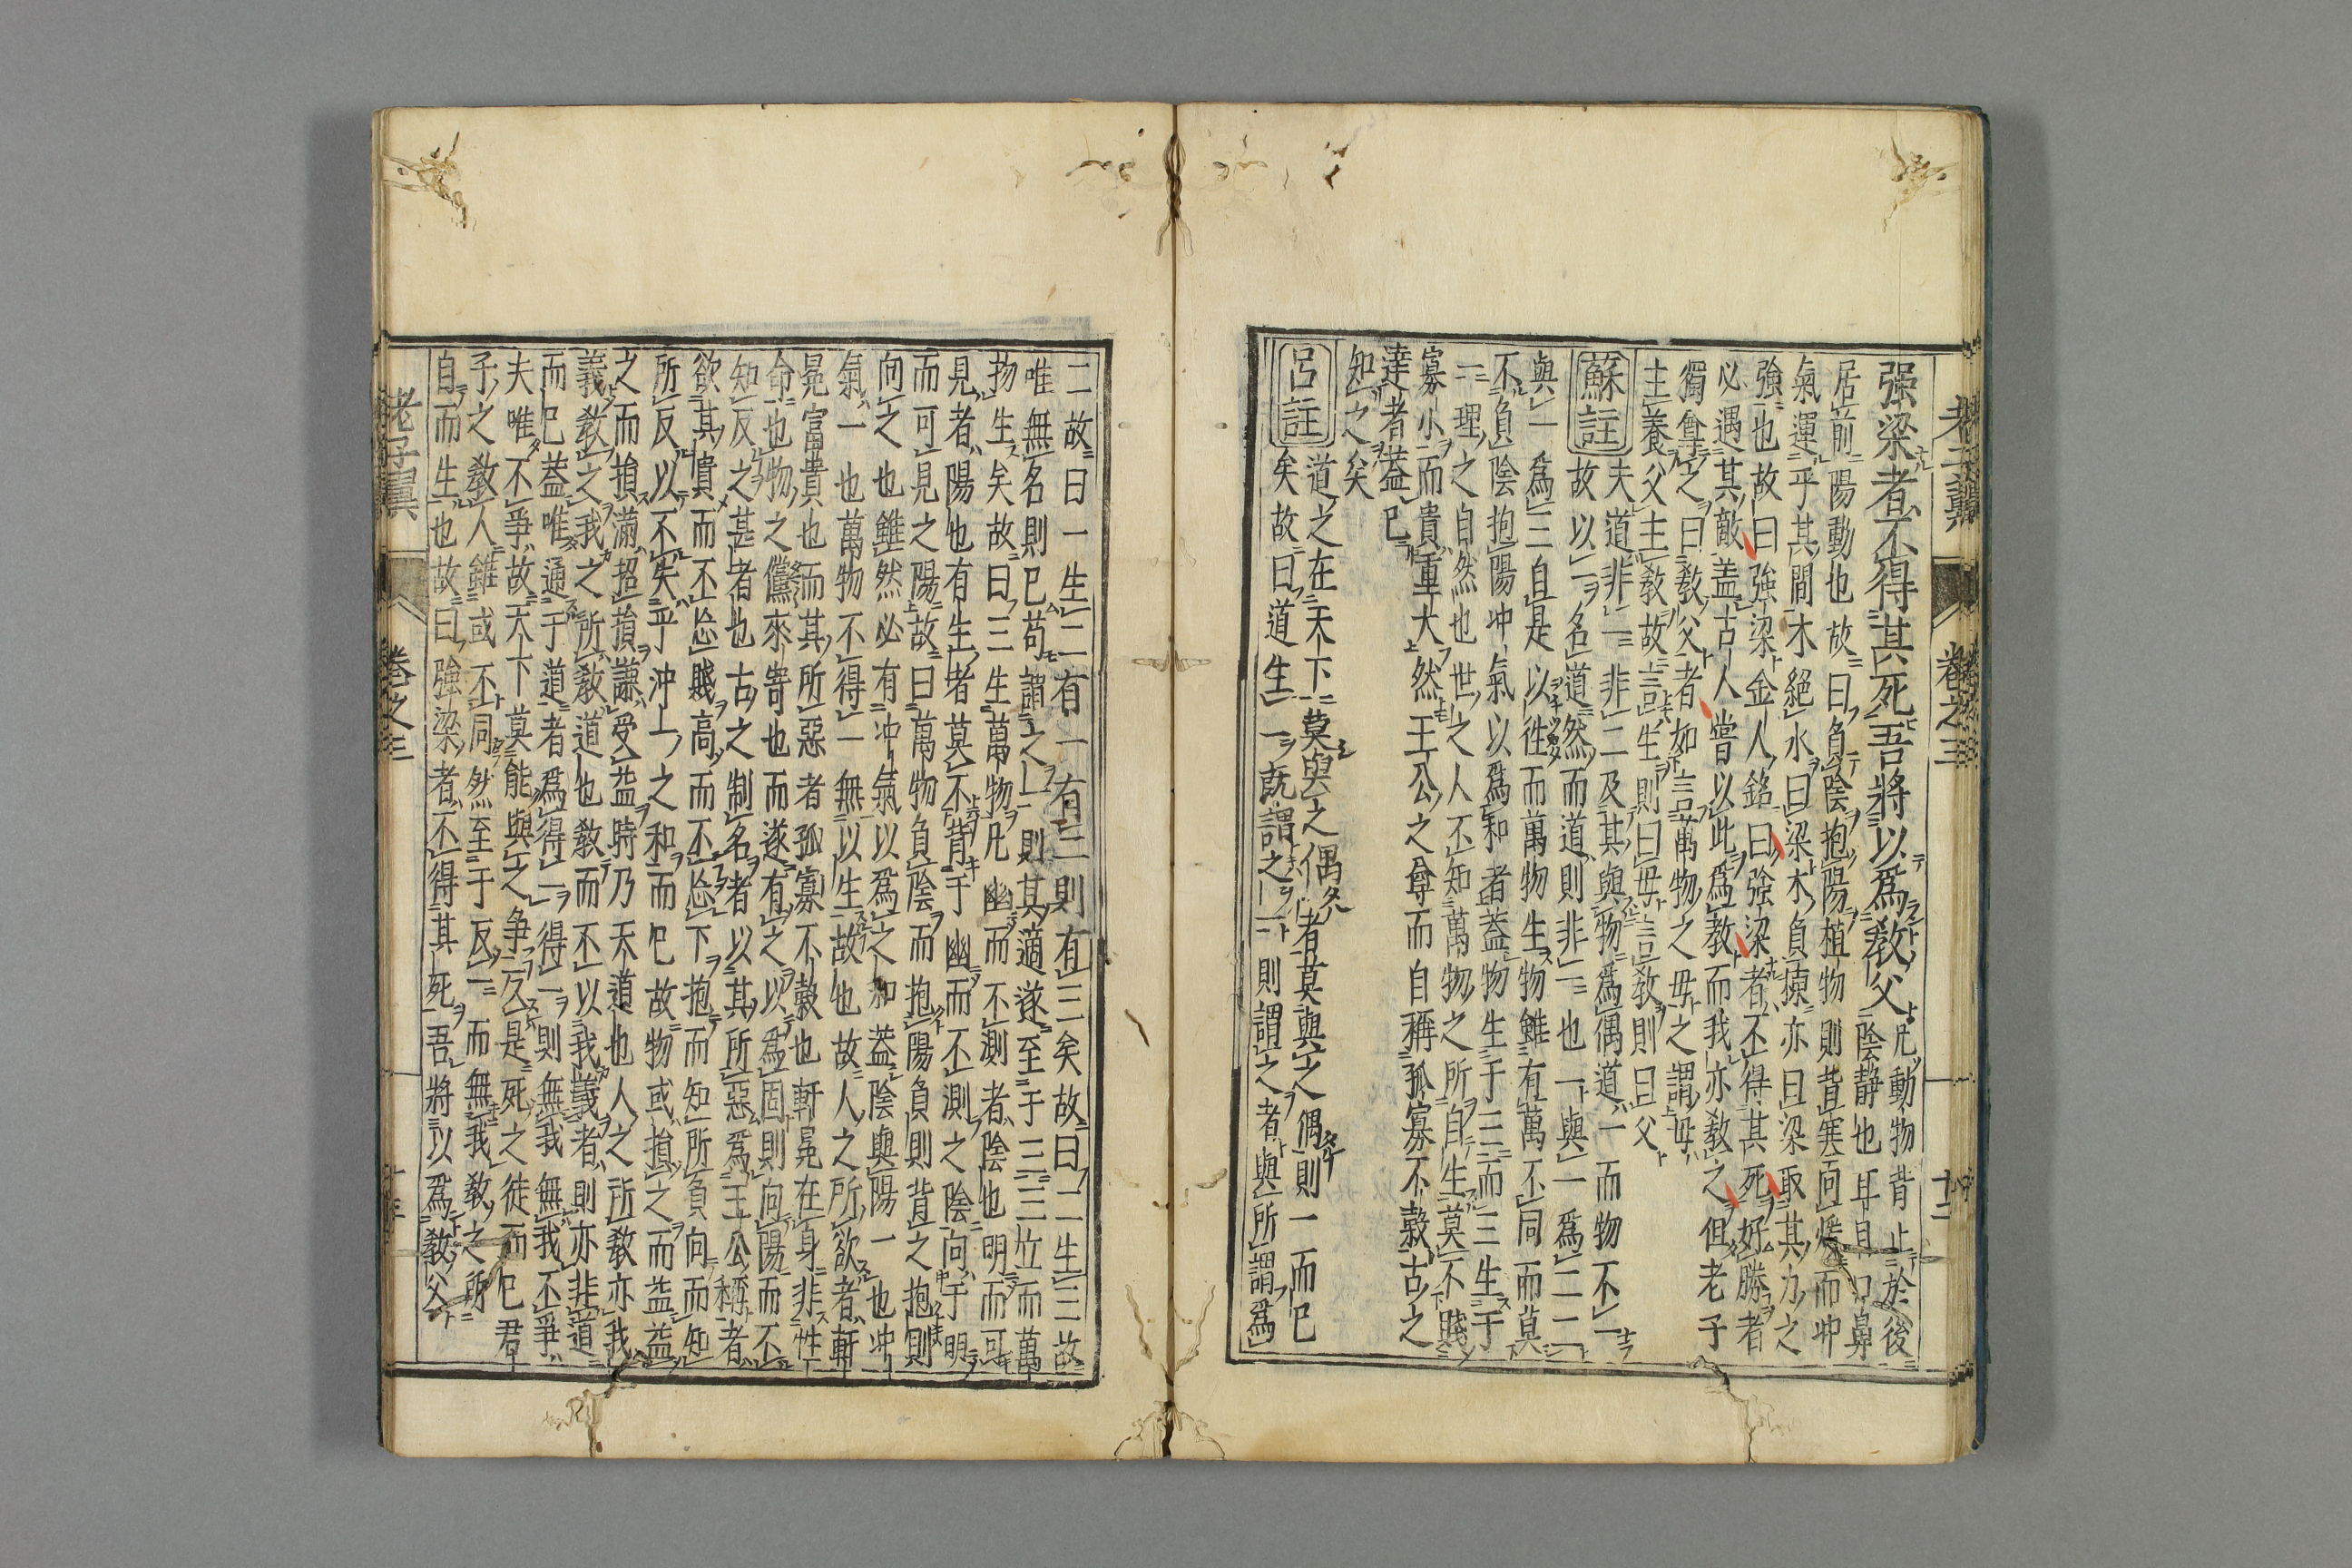 老子翼 卷之三 十二
强梁者不得其死吾將以爲教父 凡動物背止於後
陰静也耳目口鼻
居前陽動也故曰負陰抱陽植物則背寒向煖而冲
氣運乎其間木絕水曰梁木負棟亦曰梁取其力之
強也故曰強梁金人銘曰強梁者不得其死好勝者
必遇其敵盖古人嘗以此爲教而我亦教之但老子
獨尊之曰教父者如言萬物之母之謂母
主養父主教故言生則曰母言教則曰父
蘇註 夫道非一非二及其與物爲偶道一而物不一
故以一名道然而道則非一也一與一爲二二
與一爲三自是以徃而萬物生物雖有萬不同而莫
不負陰抱陽冲氣以爲和者葢物生于三而三生于
一理之自然也世之人不知萬物之所自生莫不賤
寡小而貴重大然王公之尊而自稱孤寡不穀古之
達者葢已
知之矣
呂註 道之在天下莫與之偶者莫與之偶則一而已
矣故曰道生一既謂之一則謂之者與所謂爲
二故曰一生二有一有二則有三矣故曰二生三故
唯無名則已苟謂之一則其適遂至于三三竝而萬
物生矣故曰三生萬物凡幽而不測者陰也明而可
見者陽也有生者莫不背于幽而不測之陰向于明
而可見之陽故曰萬物負陰而抱陽負則背之抱則
向之也雖然必有冲氣以爲之和葢陰與陽一也冲
氣一也萬物不得一無以生故也故人之所欲者軒
冕富貴也而其所惡者孤寡不穀也軒冕在身非性
命也物之儻來寄也而遂有之以爲固則向陽而不
知反之甚者也古之制名者以其所惡爲王公稱者
欲其貴而不忘賤高而不忘下抱而知所負向而知
所反以不失乎沖上之和而已故物或損之而益益
之而損滿招損謙受益時乃天道也人之所教亦我
義教之我之所教道也教而不以我義者則亦非道
而已葢唯通于道者爲得一得一則無我無我不爭
夫唯不爭故天下莫能與之争反是死之徒而已君
子之教人雖或不同然至于反一而無我教之所
自而生也故曰強梁者不得其死吾將以爲教父
老子翼 卷之三